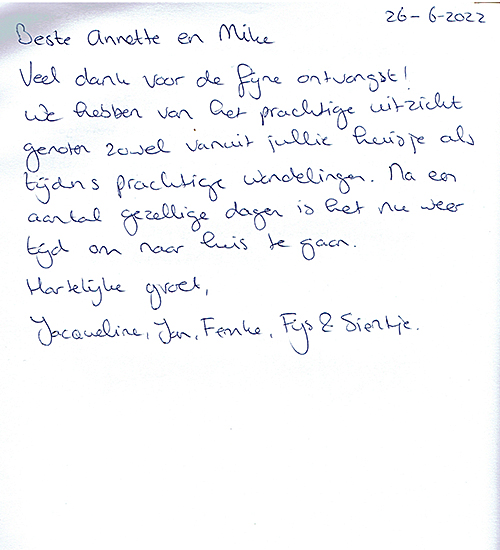 26-6-2022
Beste Annette en Mike
Veel dank voor de fijne ontvangst!
We hebben van het prachtige uitzicht
genoten zowel vanuit jullie huisje als
tijdens prachtige wandelingen. Na een
aantal gezellige dagen is het nu weer
tijd om naar huis te gaan.
Hartelijke groet,
Jacqueline, Jan, Femke, Fijs & Siertje.